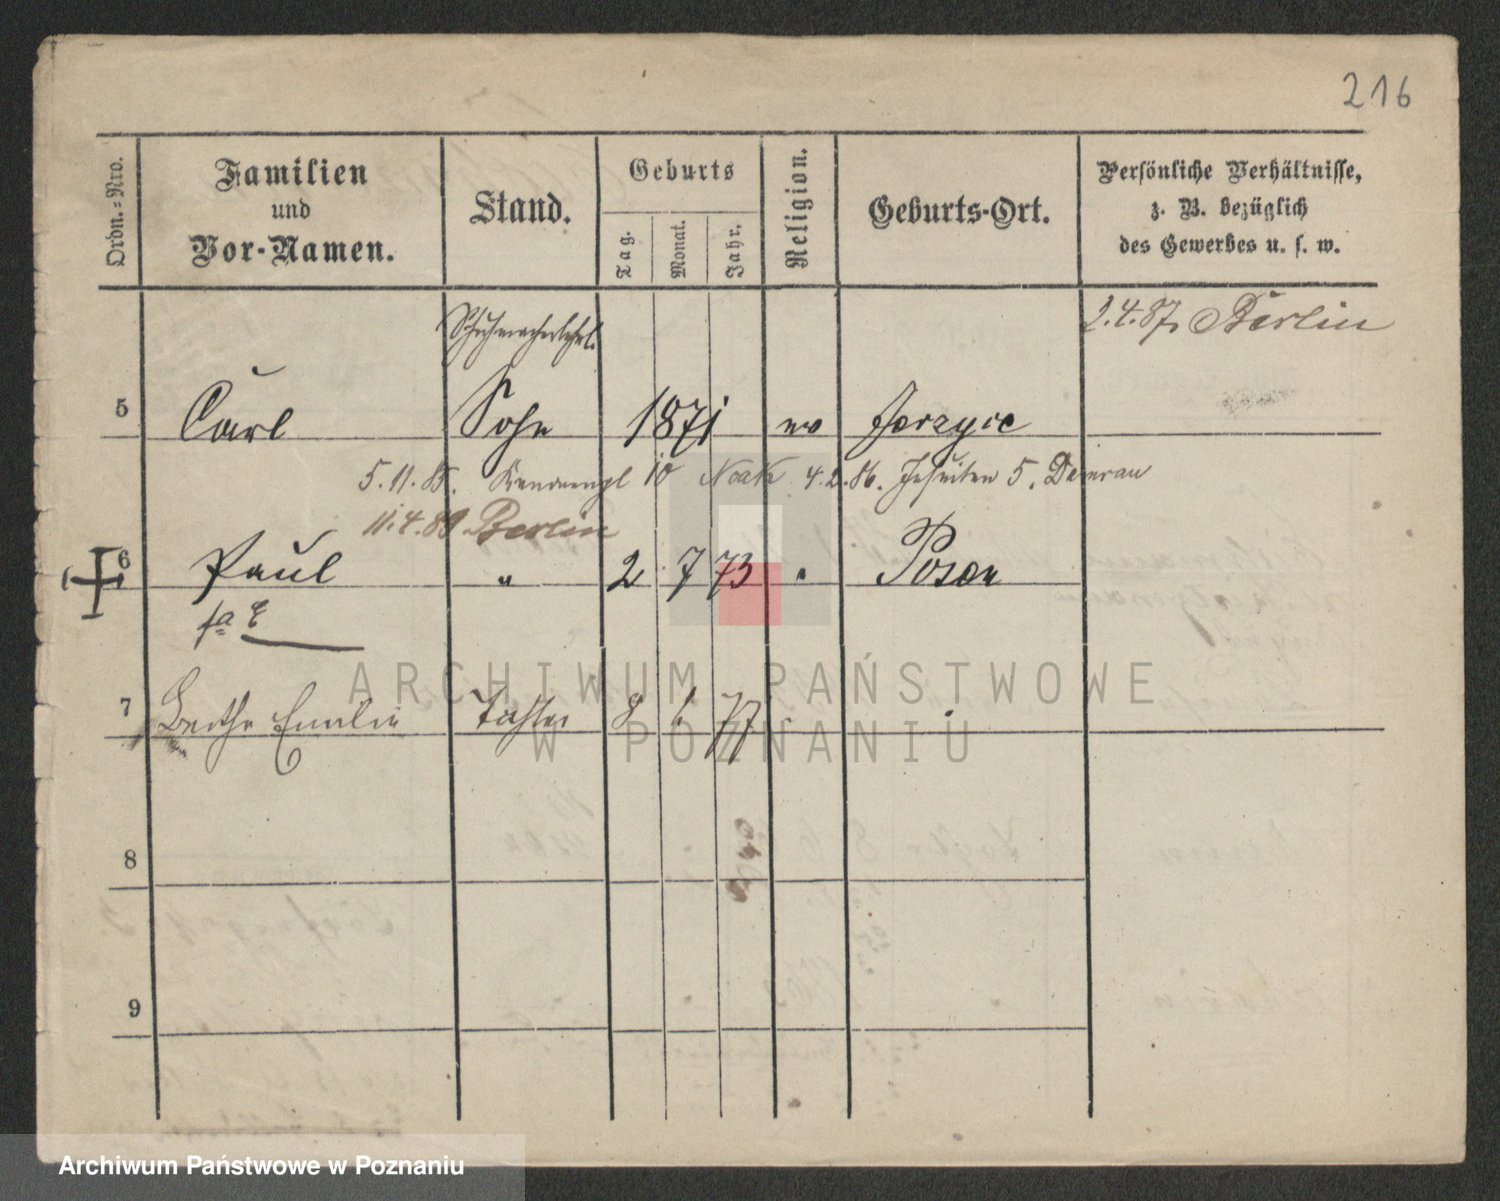 216
Ordn.=Nro.
Familien
und
Vor-Namen.
Stand.
Geburts
Tag.
Monat.
Jahr.
Religion.
Geburts-Ort.
Persönliche Verhältnisse,
z. B. bezüglich
des Gewerbes u. s. w.
Schuhmacherlehrl.
2.4.87. Berlin
5 Carl Sohn 1871 ev Jerzyce
5.11.85. 10 Noak 4.2.86. Jesuiten 5.
11.4.89 Berlin
6 Paul " 2 7 73 " Posen
7 Berthe Emilie Tochter 8 6 77
8
9
ARCHIWUM PAŃSTWOWE
W POZNANIU
Archiwum Państwowe w Poznaniu